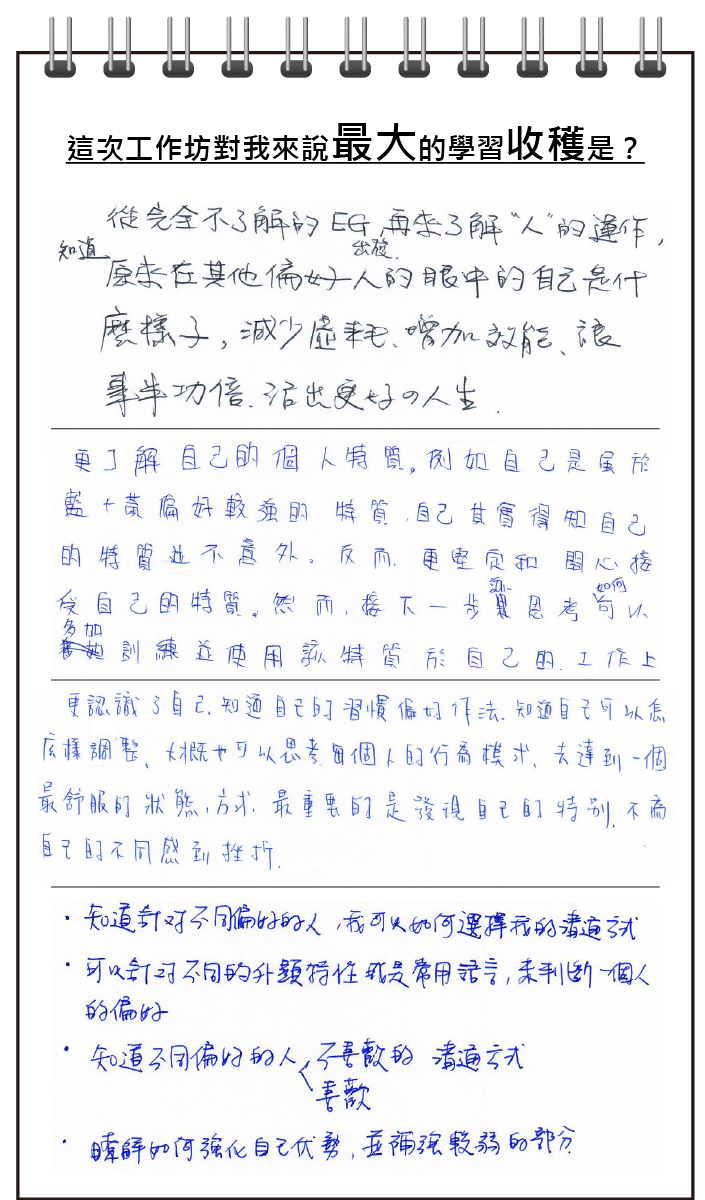 這次工作坊對我來說最大的學習收穫是？
從完全不了解的EG,再來了解"人"的運作,
知道 出發.
原來在其他偏好人的眼中的自己是什
麼樣子, 減少虛耗、增加效能、讓
事半功倍.活出更好の人生.
更了解自己的個人特質。例如自己是屬於
藍+黃偏好較強的特質.自己其實得知自己
的特質並不意外。反而.更堅定和開心接
受自己的特質。然而,接下一步 思考可以
多加 如何
訓練並使用該特質於自己的.工作上
更認識了自己.知道自己的習慣偏好作法.知道自己可以怎
麼樣調整、大概也可以思考每個人的行為模式、去達到一個
最舒服的狀態,方式.最重要的是發現自己的特別.不為
自己的不同感到挫折.
・知道針對不同偏好的人,我可以如何選擇我的溝通方式
・可以針對不同的外顯特性或是常用語言,來判斷一個人
的偏好
・知道不同偏好的人 不喜歡的 溝通方式
喜歡
・瞭解如何強化自己优勢,並補強較弱的部分